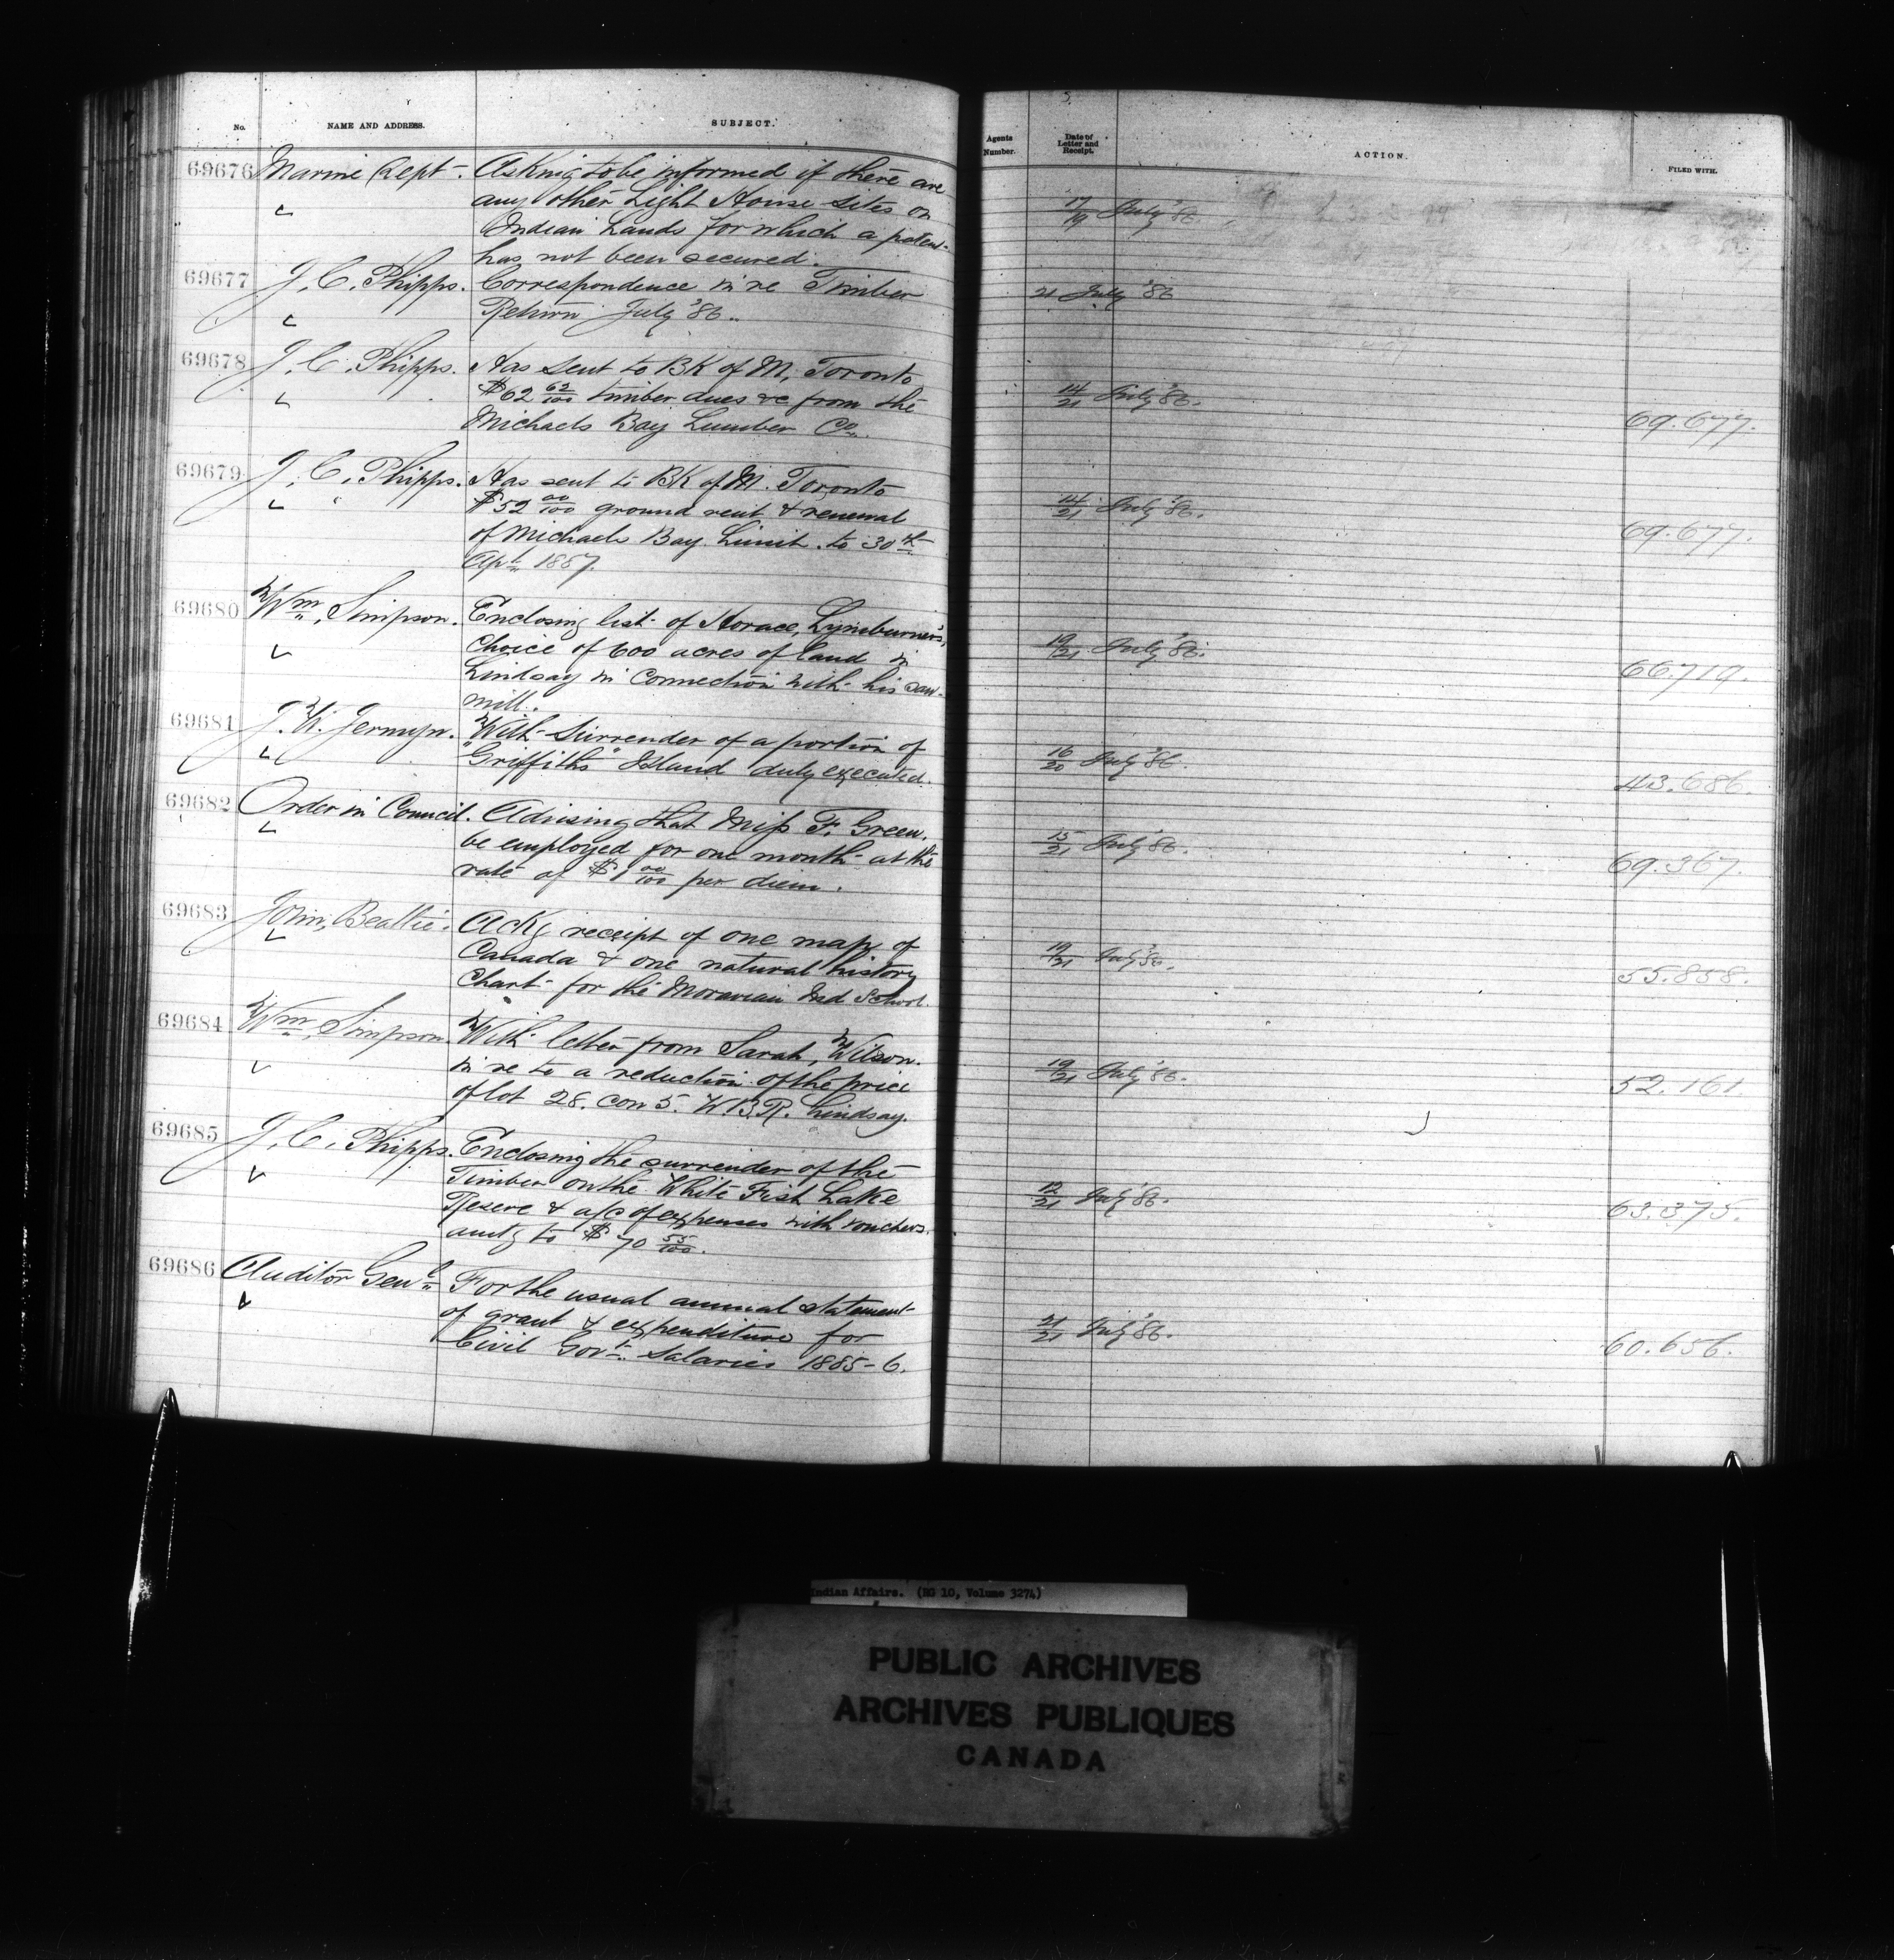 No. NAME AND ADDRESS. SUBJECT.
69676 Marine Dept. Asking to be informed if there are
any other Light House sites on
Indian Lands for which a patent
has not been secured.
69677 J. C. Phipps. Correspondence in re Timber
Return July '86.
69678 J. C. Phipps. Has sent to BK of M, Toronto
$62 62/100 timber dues &c from the
Michaels Bay Lumber Co.
69679 J. C. Phipps. Has sent to BK of M. Toronto
$52 00/100 ground rent & renewal
of Michaels Bay Limit to 30th
Apl 1887.
69680 Wm, Simpson. Enclosing list of Horace, Lymburner's,
choice of 600 acres of land in
Lindsay in connection with his saw-
mill.
69681 J. W. Jermyn. With Surrender of a portion of
"Griffiths" Island duly executed.
69682 Order in Council. Advising that Miss F. Green.
be employed for one month at the
rate of $1 00/100 per diem.
69683 John, Beattie. Ackg receipt of one map of
Canada & one natural history
Chart for the Moravian Ind School.
69684 Wm, Simpson. With letter from Sarah, Wilson.
in re to a reduction of the price
of lot 28. con 5. W.B.R. Lindsay.
69685 J. C. Phipps. Enclosing the surrender of the
Timber on the White Fish Lake
Reserve & a/c of expenses with vouchers.
amtg to $70 55/100.
69686 Auditor Genl For the usual annual statement
of grant & expenditure for
Civil Govt. Salaries 1885-6.
Agents Number. Date of Letter and Receipt. ACTION. FILED WITH.
17/19 July '86.
21 July '86
14/21 July '86. 69.677.
14/21 July '86. 69.677.
19/21 July '86. 66.719.
16/20 July '86. 43.686.
15/21 July '86. 69.367.
19/21 July '86. 55.858.
19/21 July '86. 52.161.
12/21 July '86. 63.375.
21/21 July '86. 60.656.
Indian Affairs. (RG 10, Volume 3274)
PUBLIC ARCHIVES
ARCHIVES PUBLIQUES
CANADA